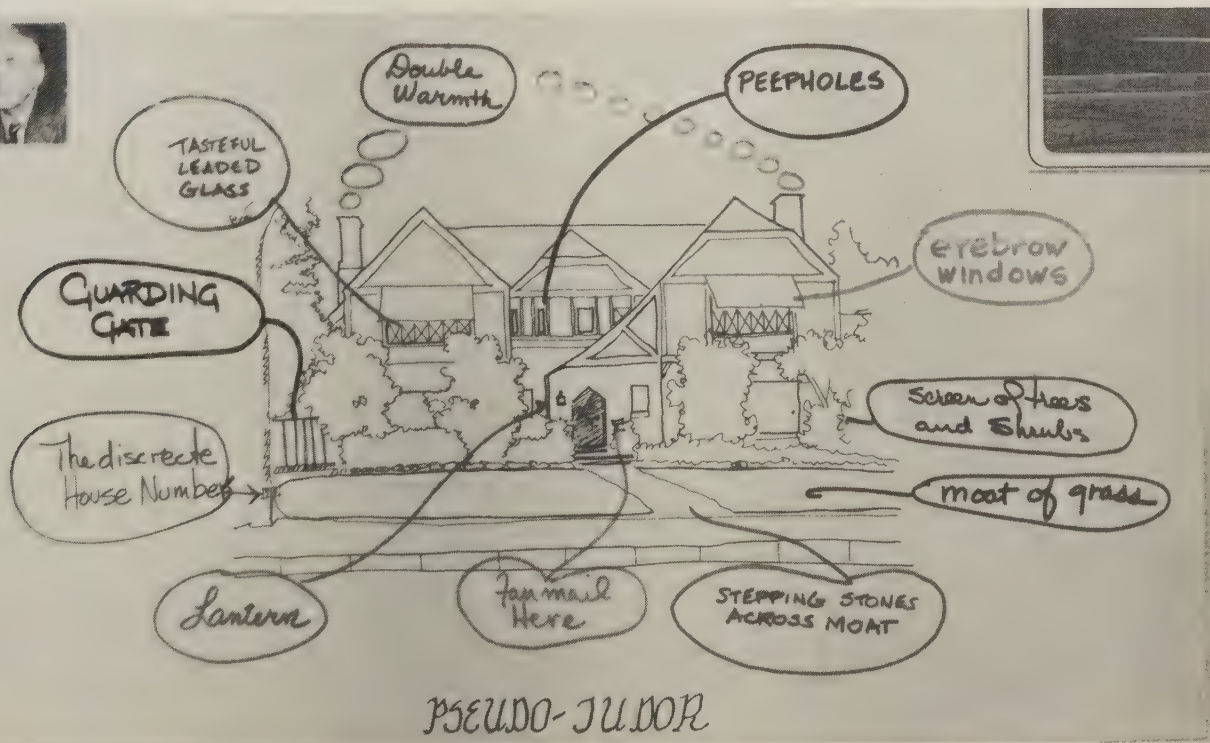 Double
Warmth
PEEPHOLES
TASTEFUL
LEADED
GLASS
eyebrow
windows
GUARDING
GATE
Screen of trees
and Shrubs
The discrecte
House Number
moat of grass
Lantern
Fan mail
Here
STEPPING STONES
ACROSS MOAT
PSEUDO-TUDOR